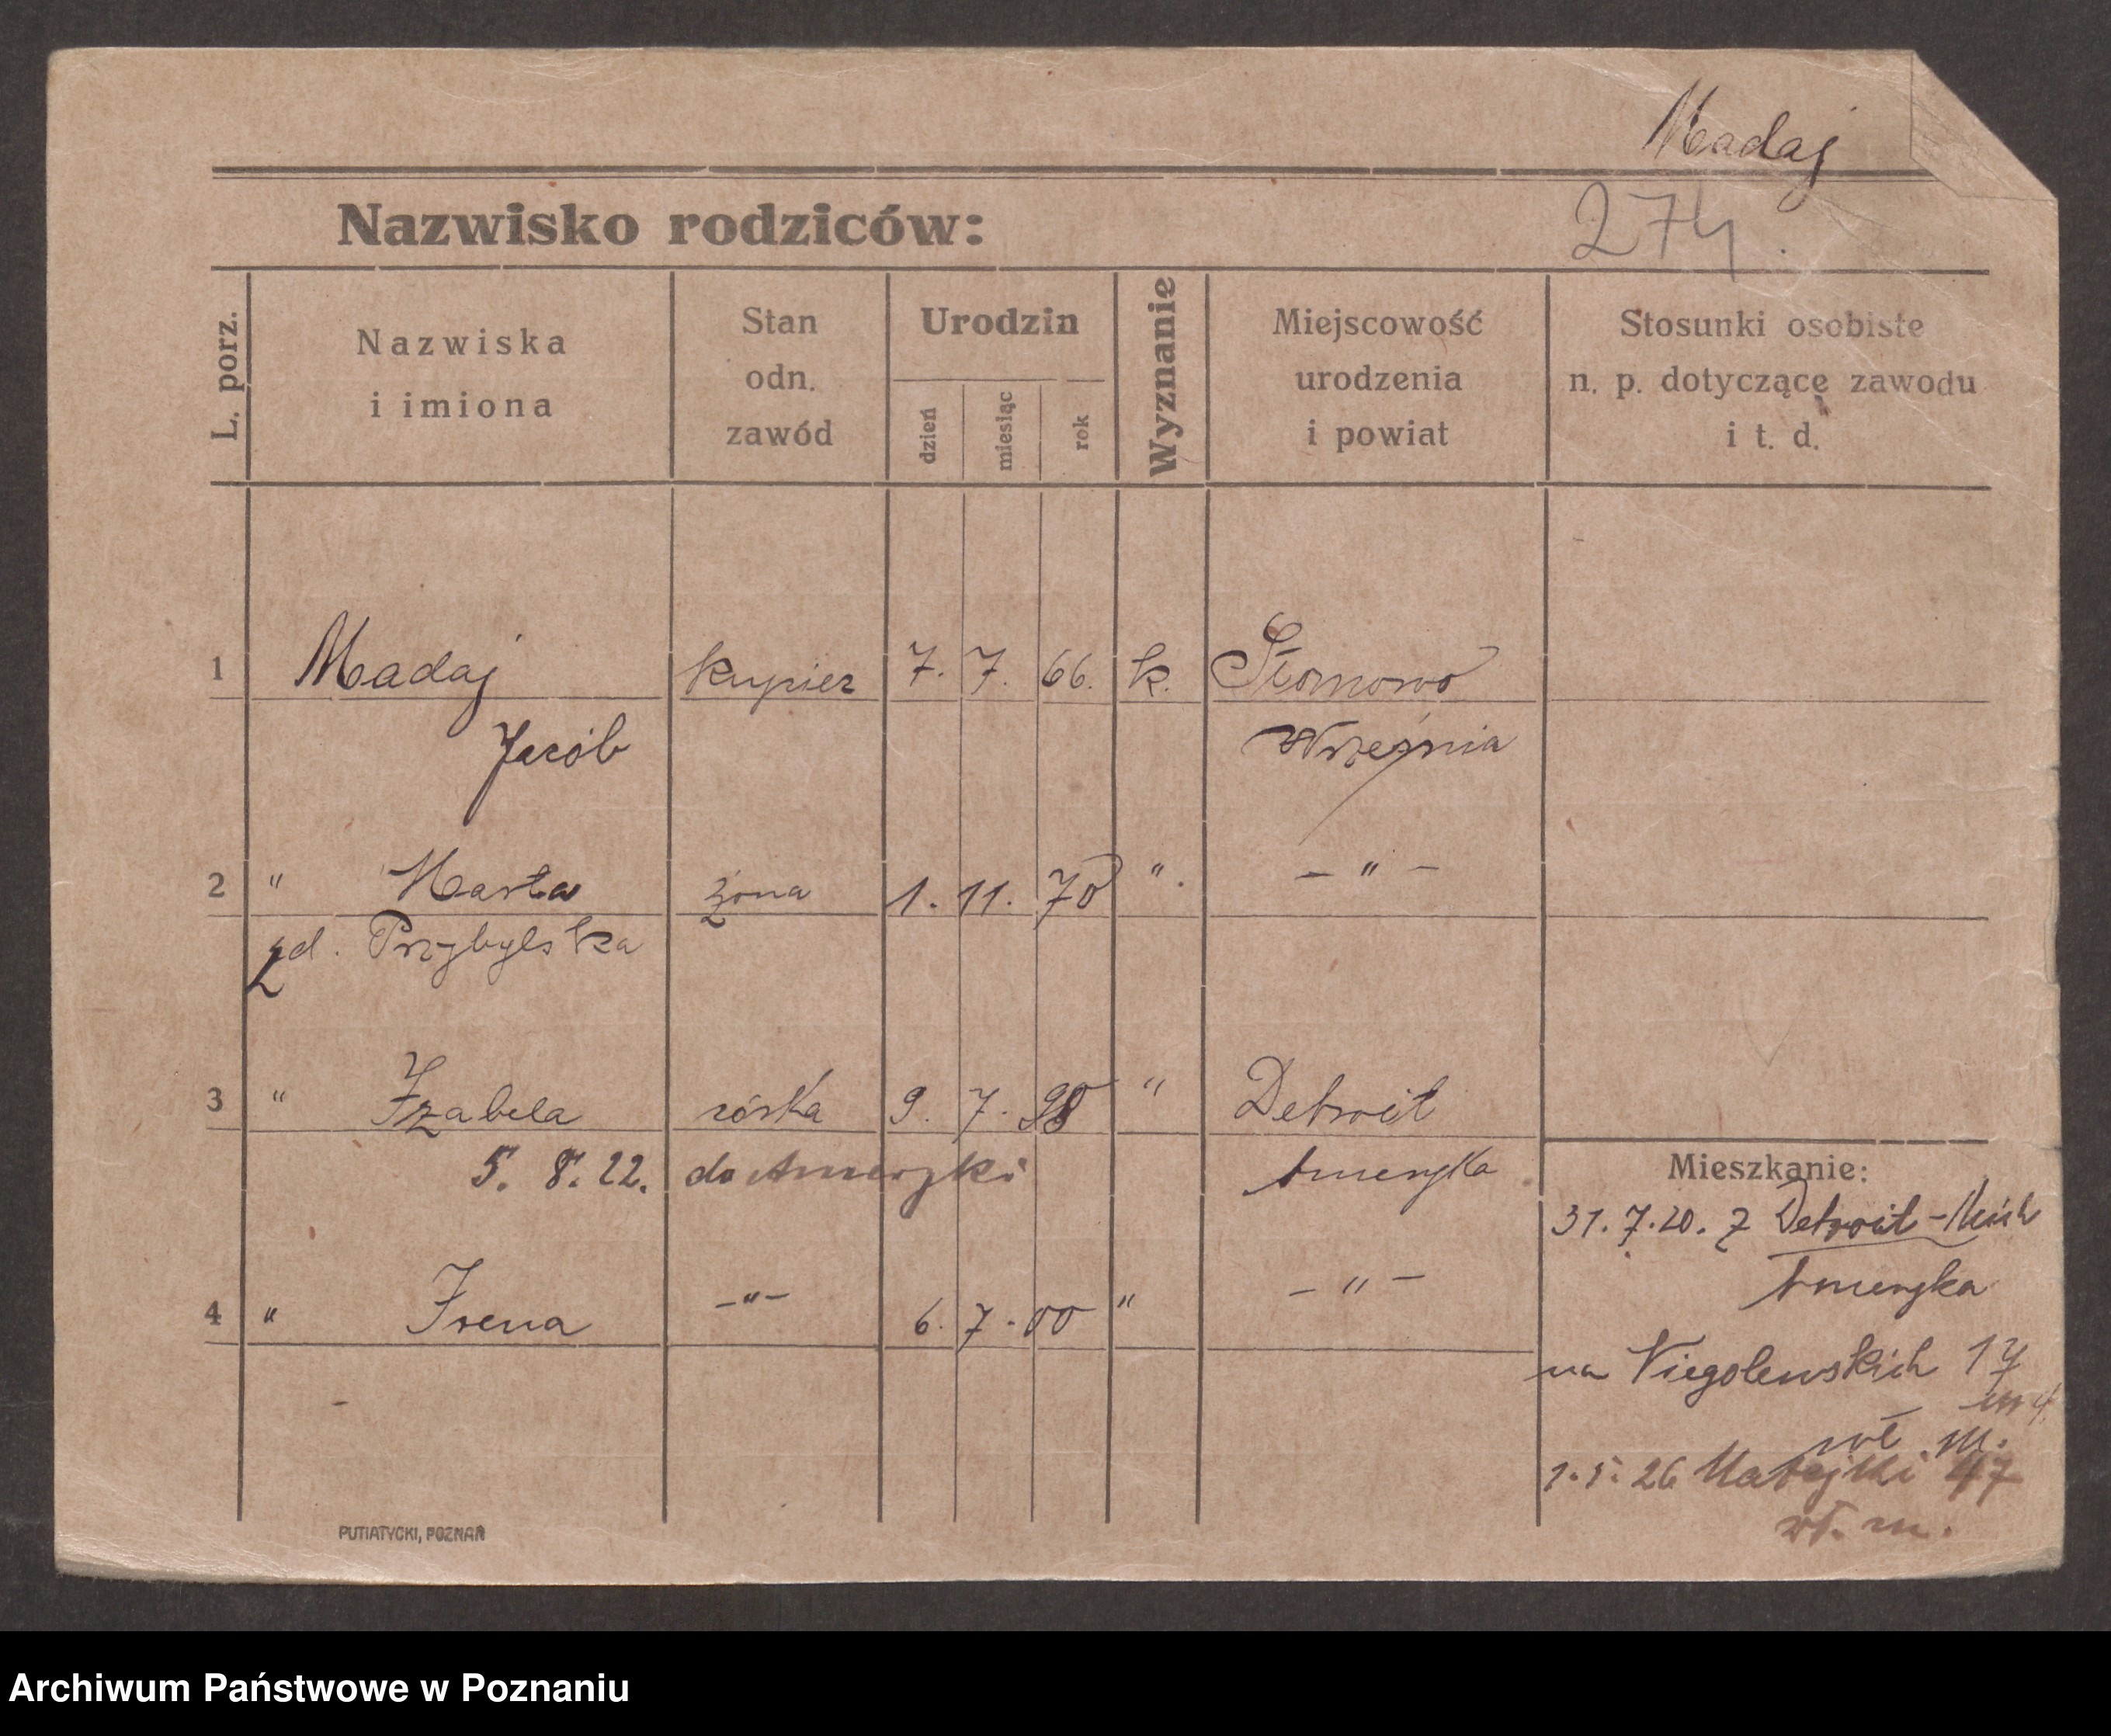 Madaj
Nazwisko rodziców:
274.
L. porz.
Nazwiska
i imiona
Stan
odn.
zawód
Urodzin
dzień
miesiąc
rok
Wyznanie
Miejscowość
urodzenia
i powiat
Stosunki osobiste
n. p. dotyczące zawodu
i t. d.
1 Madaj kupiec 7. 7. 66. k.
Września
2 " Marta żona 1. 11. 70 " . – " –
zd. Przybylska
3 " Izabela córka 9. 7. 98 " Detroit
5. 8. 22. do Ameryki Ameryka
4 " Irena –"– 6. 7. 00 " – " –
Mieszkanie:
31. 7. 20. z Detroit – Mich
Ameryka
na Niegolewskich 17
m 4.
wł. m.
1. 5. 26 Matejki 47
wł. m.
PUTIATYCKI, POZNAŃ
Archiwum Państwowe w Poznaniu